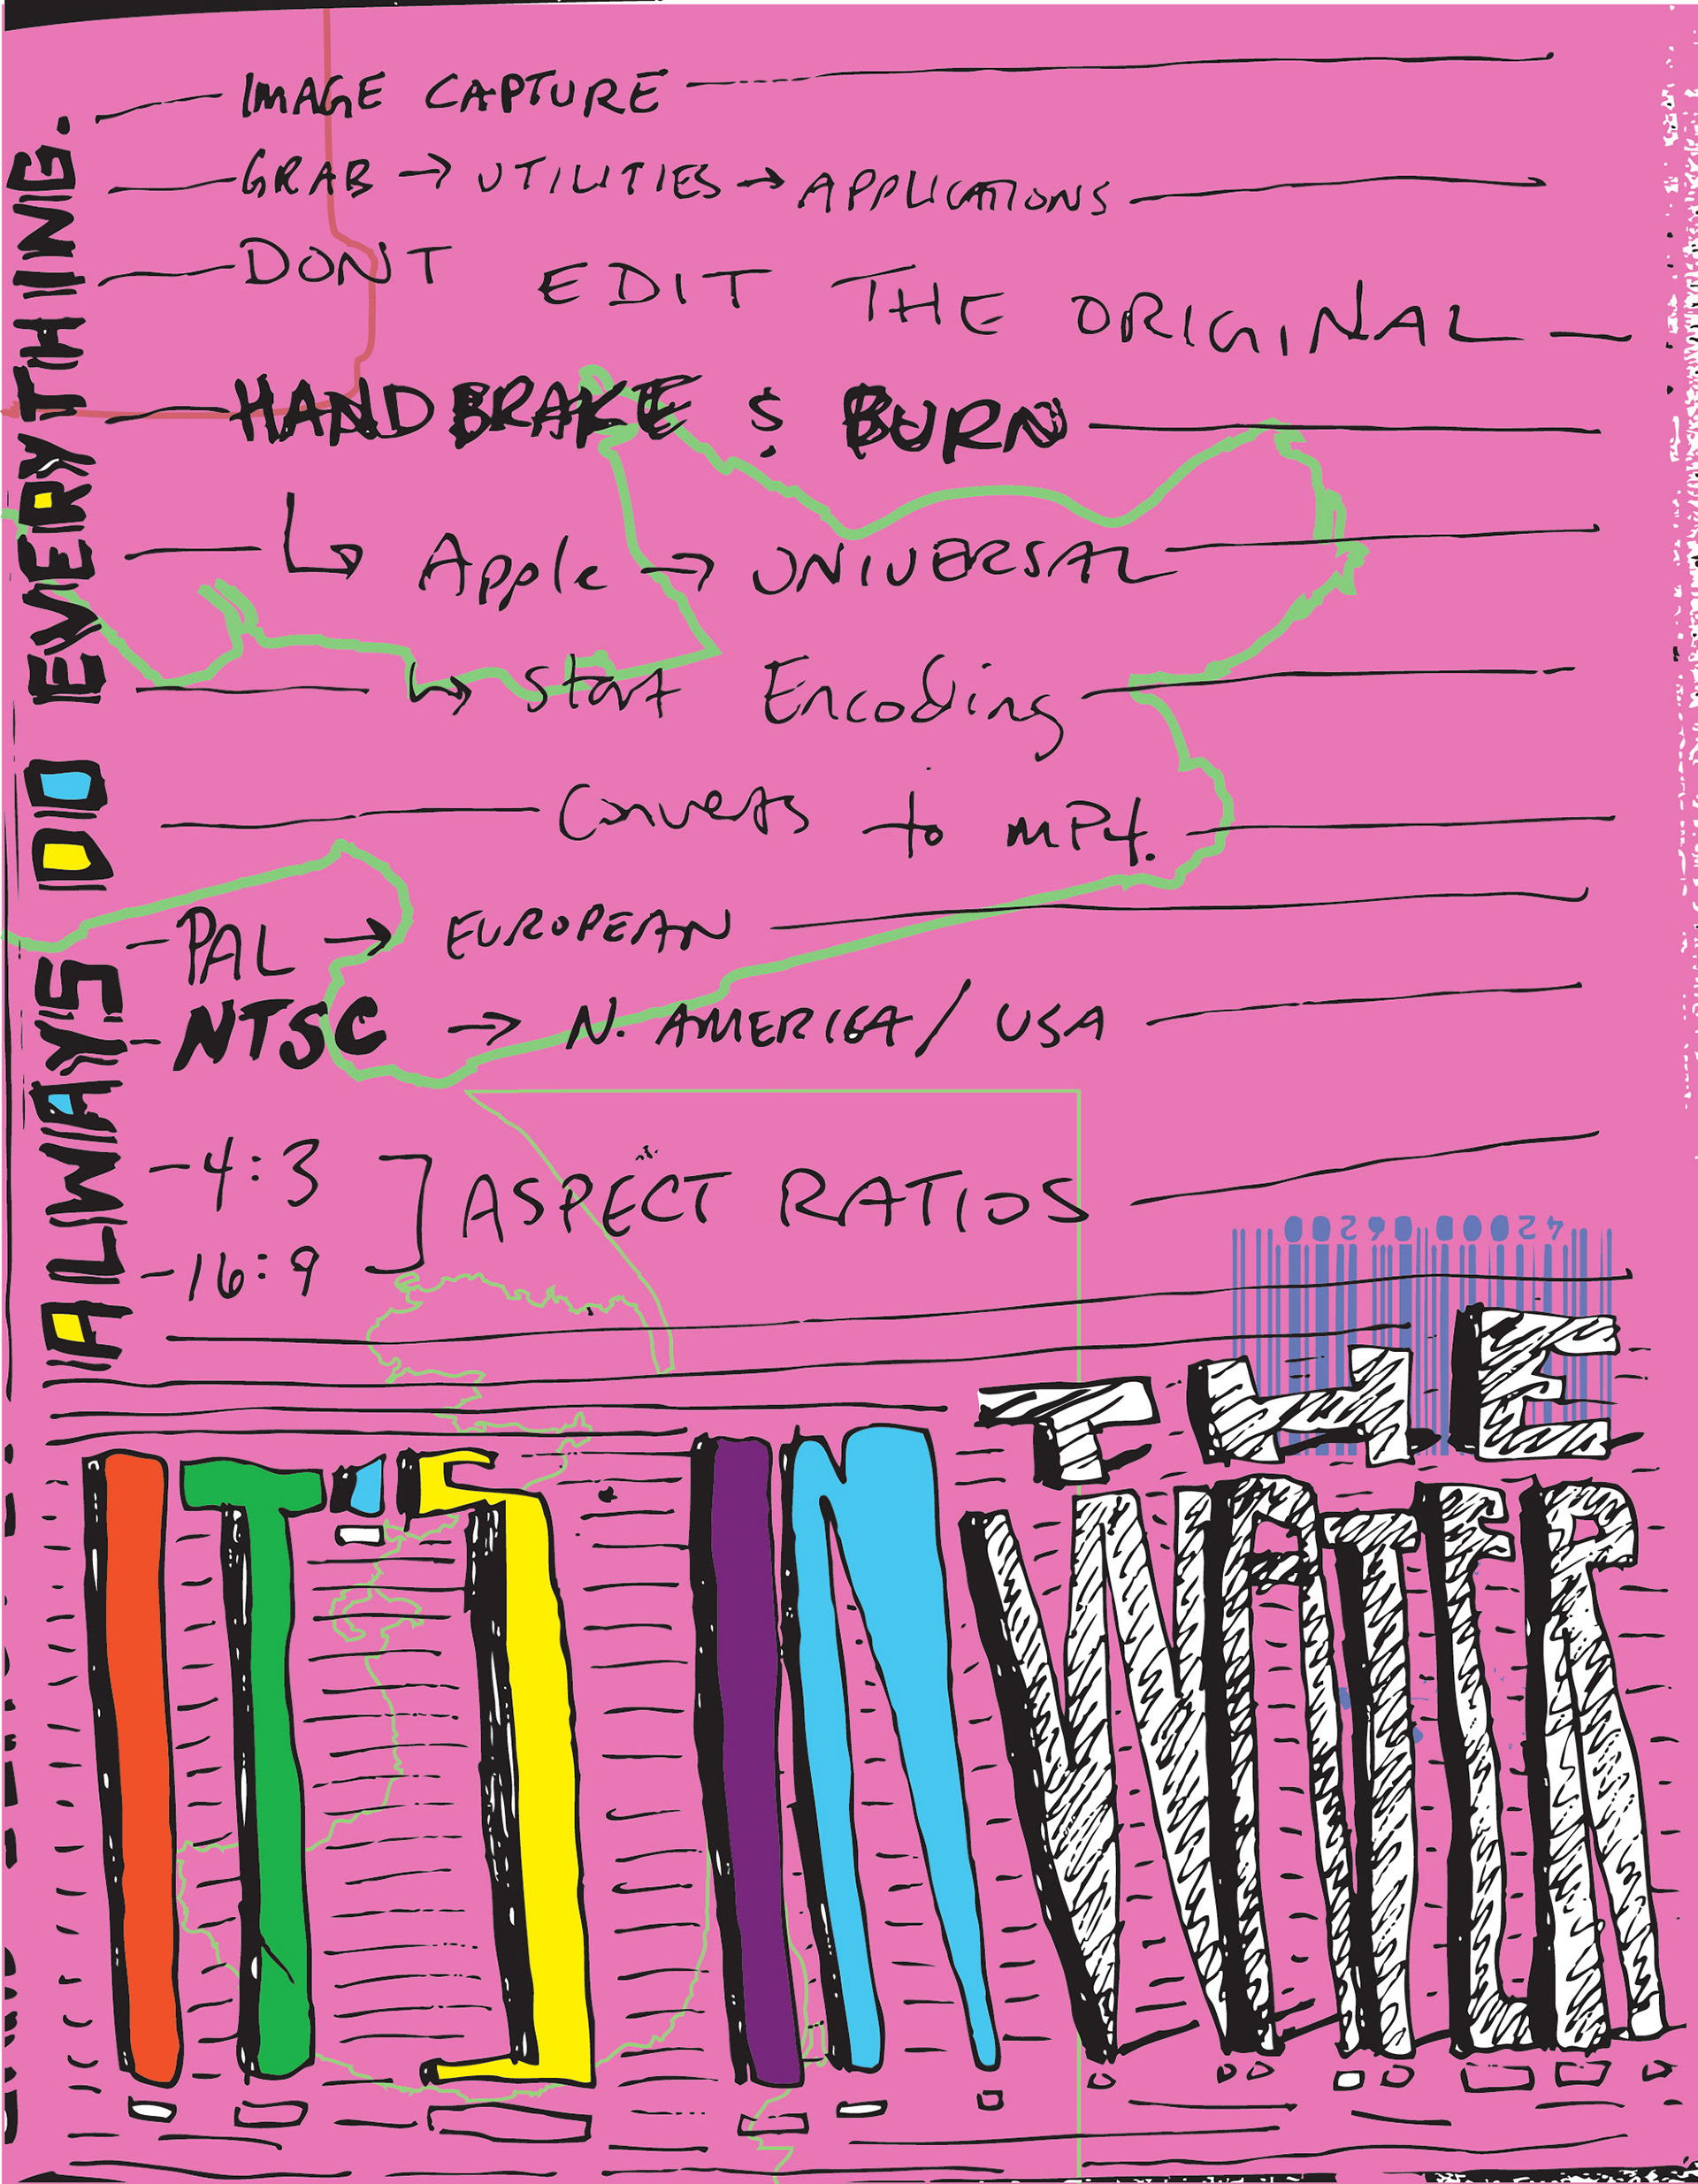 IMAGE CAPTURE
GRAB → UTILITIES → APPLICATIONS
DONT EDIT THE ORIGINAL
HANDBRAKE & BURN
↳ Apple → UNIVERSAL
↳ Start Encoding
Converts to MP4.
-PAL → EUROPEAN
-NTSC → N. AMERICA / USA
-4:3
-16:9
] ASPECT RATIOS
ALWAYS DO EVERYTHING.
42000 06200
IT'S IN THE
WATER